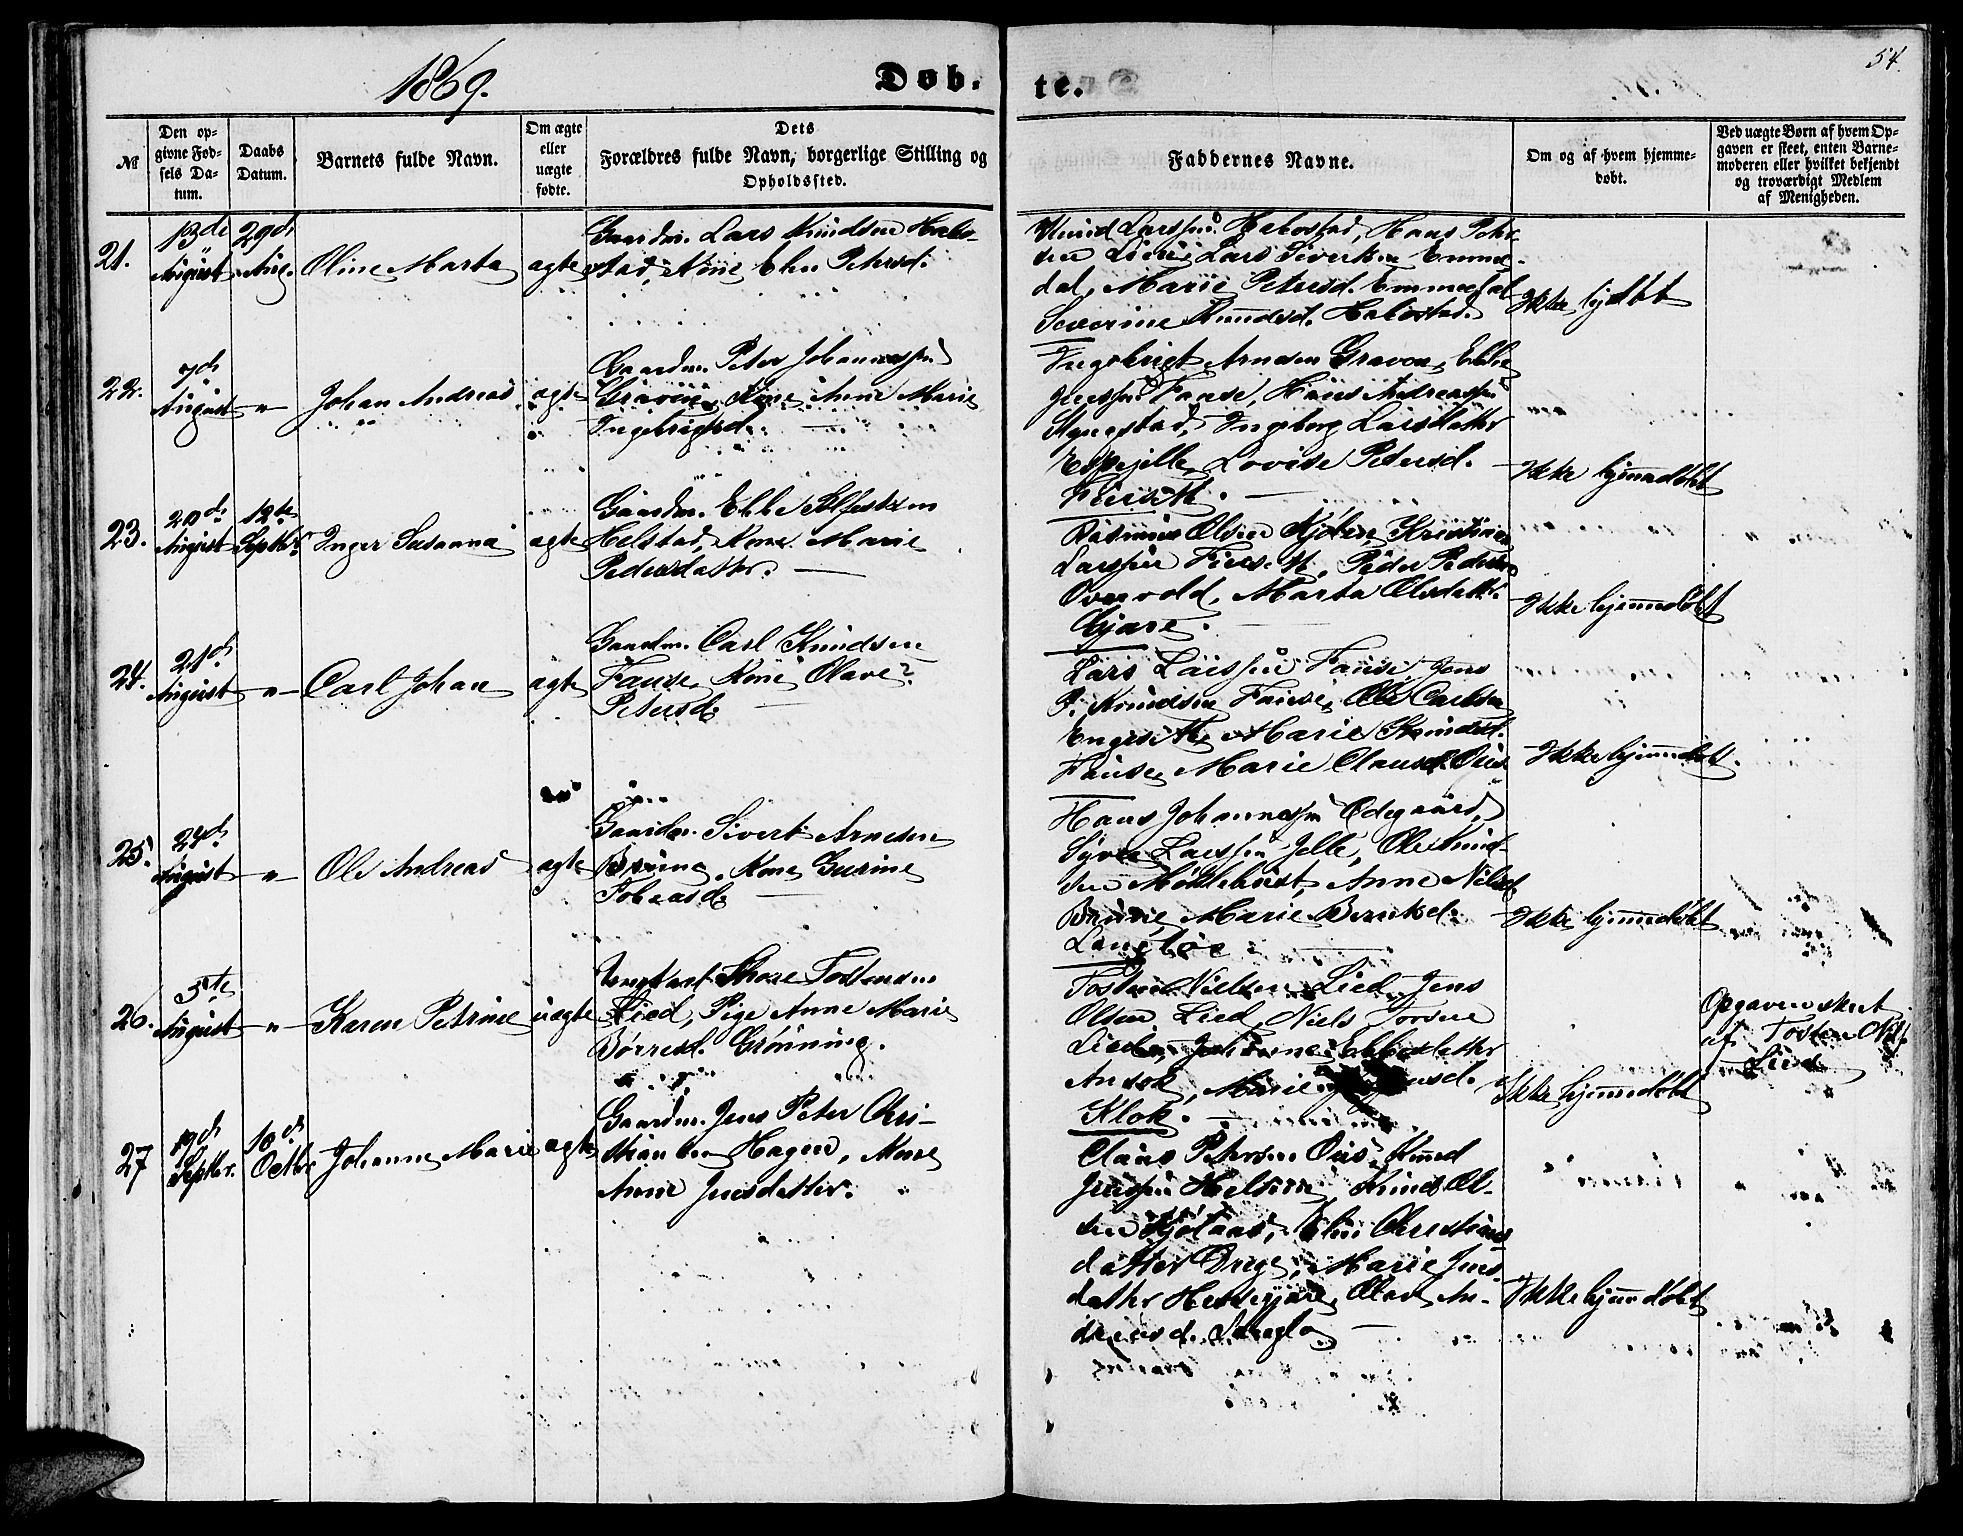 54.
1869.
Døb-
te.
№
Den op-
givne Fød-
sels Da-
tum.
Daabs
Datum.
Barnets fulde Navn.
Om ægte
eller
uægte
fødte.
Dets
Forældres fulde Navn, borgerlige Stilling og
Opholdssted.
Faddernes Navne.
Om og af hvem hjemme-
døbt.
Ved uægte Børn af hvem Op-
gaven er skeet, enten Barne-
moderen eller hvilket bekjendt
og troværdigt Medlem
af Menigheden.
21.
13de
August
29de
Aug.
Oline Marta
ægte
Gaardm. Lars Knudsen Habo-
stad, Kone Elen Petersd.
Knud Larssen Habostad, Hans Peter-
sen Lars Sivertsen Emme-
dal, Marie Petersd. Emmedal
Severine Knudsd. Habostad.
Ikke hjdøbt
22.
7de
August
-"-
Johan Andreas
ægte
Gaardm. Peter Johannessen
Graven, Kone Anne Marie
Ingebrigtsd.
Ingebrigt Arnesen Graven, Ebbe
Jenssen Fause, Hans Andreassen
Ingeborg Larsdatter
Lovise Petersd.
Ikke hjemmedøbt
23.
20de
August
12te
Septbr
Inger Susanna
ægte
Gaardm. Ebbe
Helstad, Kone Marie
Pedersdatter.
Rasmus Olsen Kristian
Larssen Peder Pedersen
Overvold, Marta Olsdatter
Gjære.
Ikke hjemmedøbt
24.
21de
August
-"-
Carl Johan
ægte
Gaardm. Carl Knudsen
Fause, Kone Olave?
Petersd.
Lars Larssen Fause, Jens
P. Knudsen Fause, Ole Carlsen
Engeseth, Marie Knudsd.
Fause, Marie Clausd. Ous
Ikke hjemmedøbt.
25.
24de
August
-"-
Ole Andreas
ægte
Gaardm. Sivert Arnesen
Brune, Kone Gurine
Tobeasd.
Hans Johannessen Ødegaard,
Syver Larssen Jelle, Ole Knud-
sen Anne Nilsd.
Brune, Marie Berntsd.
Langløe.
Ikke hjemmedøbt
26.
5te
August
-"-
Karen Petrine
uægte
Ungkarl Thore Tostensen
Lied, Pige Anne Marie
Børresd. Grönning.
Tosten Nielsen Lied, Jens
Olsen Lied, Niels Torsen
Lied, Johanne Ebbesdatter
Ansok, Marie
Klok.
Ikke hjemmedøbt
Opgaven skeet
af Tosten Nils.
Lied
27
19de
Septbr.
10de
Octbr
Johanne Marie
ægte
Gaardm. Jens Peter Chri-
stiansen Hagen, Kone
Anne Jensdatter.
Claus Petersen Ous, Knud
Jenssen Helsem, Knud Ol-
sen Elen Christians
datter Drege, Marie Jens-
datter Hessegjære, Olave An-
dreasd.
Ikke hjemmedøbt